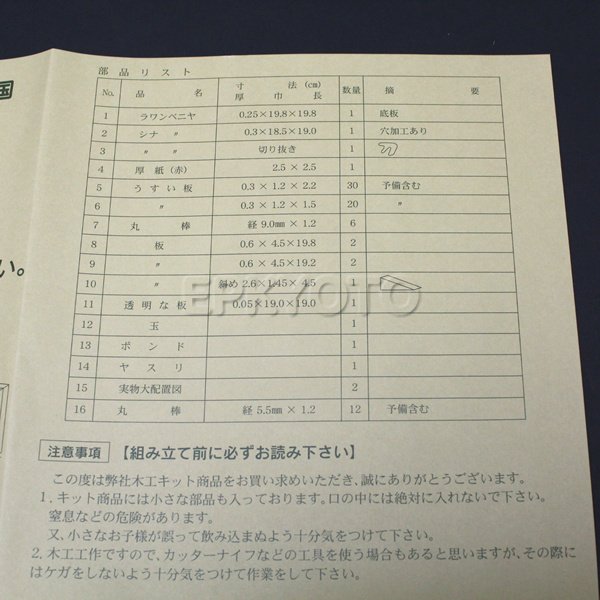 国
い。
部品リスト
No. 品 名 寸 法(cm) 厚 巾 長 数量 摘 要
1 ラワンベニヤ 0.25×19.8×19.8 1 底板
2 シナ 〃 0.3×18.5×19.0 1 穴加工あり
3 〃 〃 切り抜き 1
4 厚紙(赤) 2.5×2.5 1
5 うすい板 0.3×1.2×2.2 30 予備含む
6 〃 0.3×1.2×1.5 20 〃
7 丸 棒 経 9.0mm×1.2 6
8 板 0.6×4.5×19.8 2
9 〃 0.6×4.5×19.2 2
10 〃 斜め 2.6×1.45×4.5 1
11 透明な板 0.05×19.0×19.0 1
12 玉 1
13 ボンド 1
14 ヤスリ 1
15 実物大配置図 2
16 丸 棒 経 5.5mm×1.2 12 予備含む
EPKYOTO
注意事項 【組み立て前に必ずお読み下さい】
この度は弊社木工キット商品をお買い求めいただき、誠にありがとうございます。
1, キット商品には小さな部品も入っております。口の中には絶対に入れないで下さい。
窒息などの危険があります。
又、小さなお子様が誤って飲み込まぬよう十分気をつけて下さい。
2, 木工工作ですので、カッターナイフなどの工具を使う場合もあると思いますが、その際に
はケガをしないよう十分気をつけて作業をして下さい。